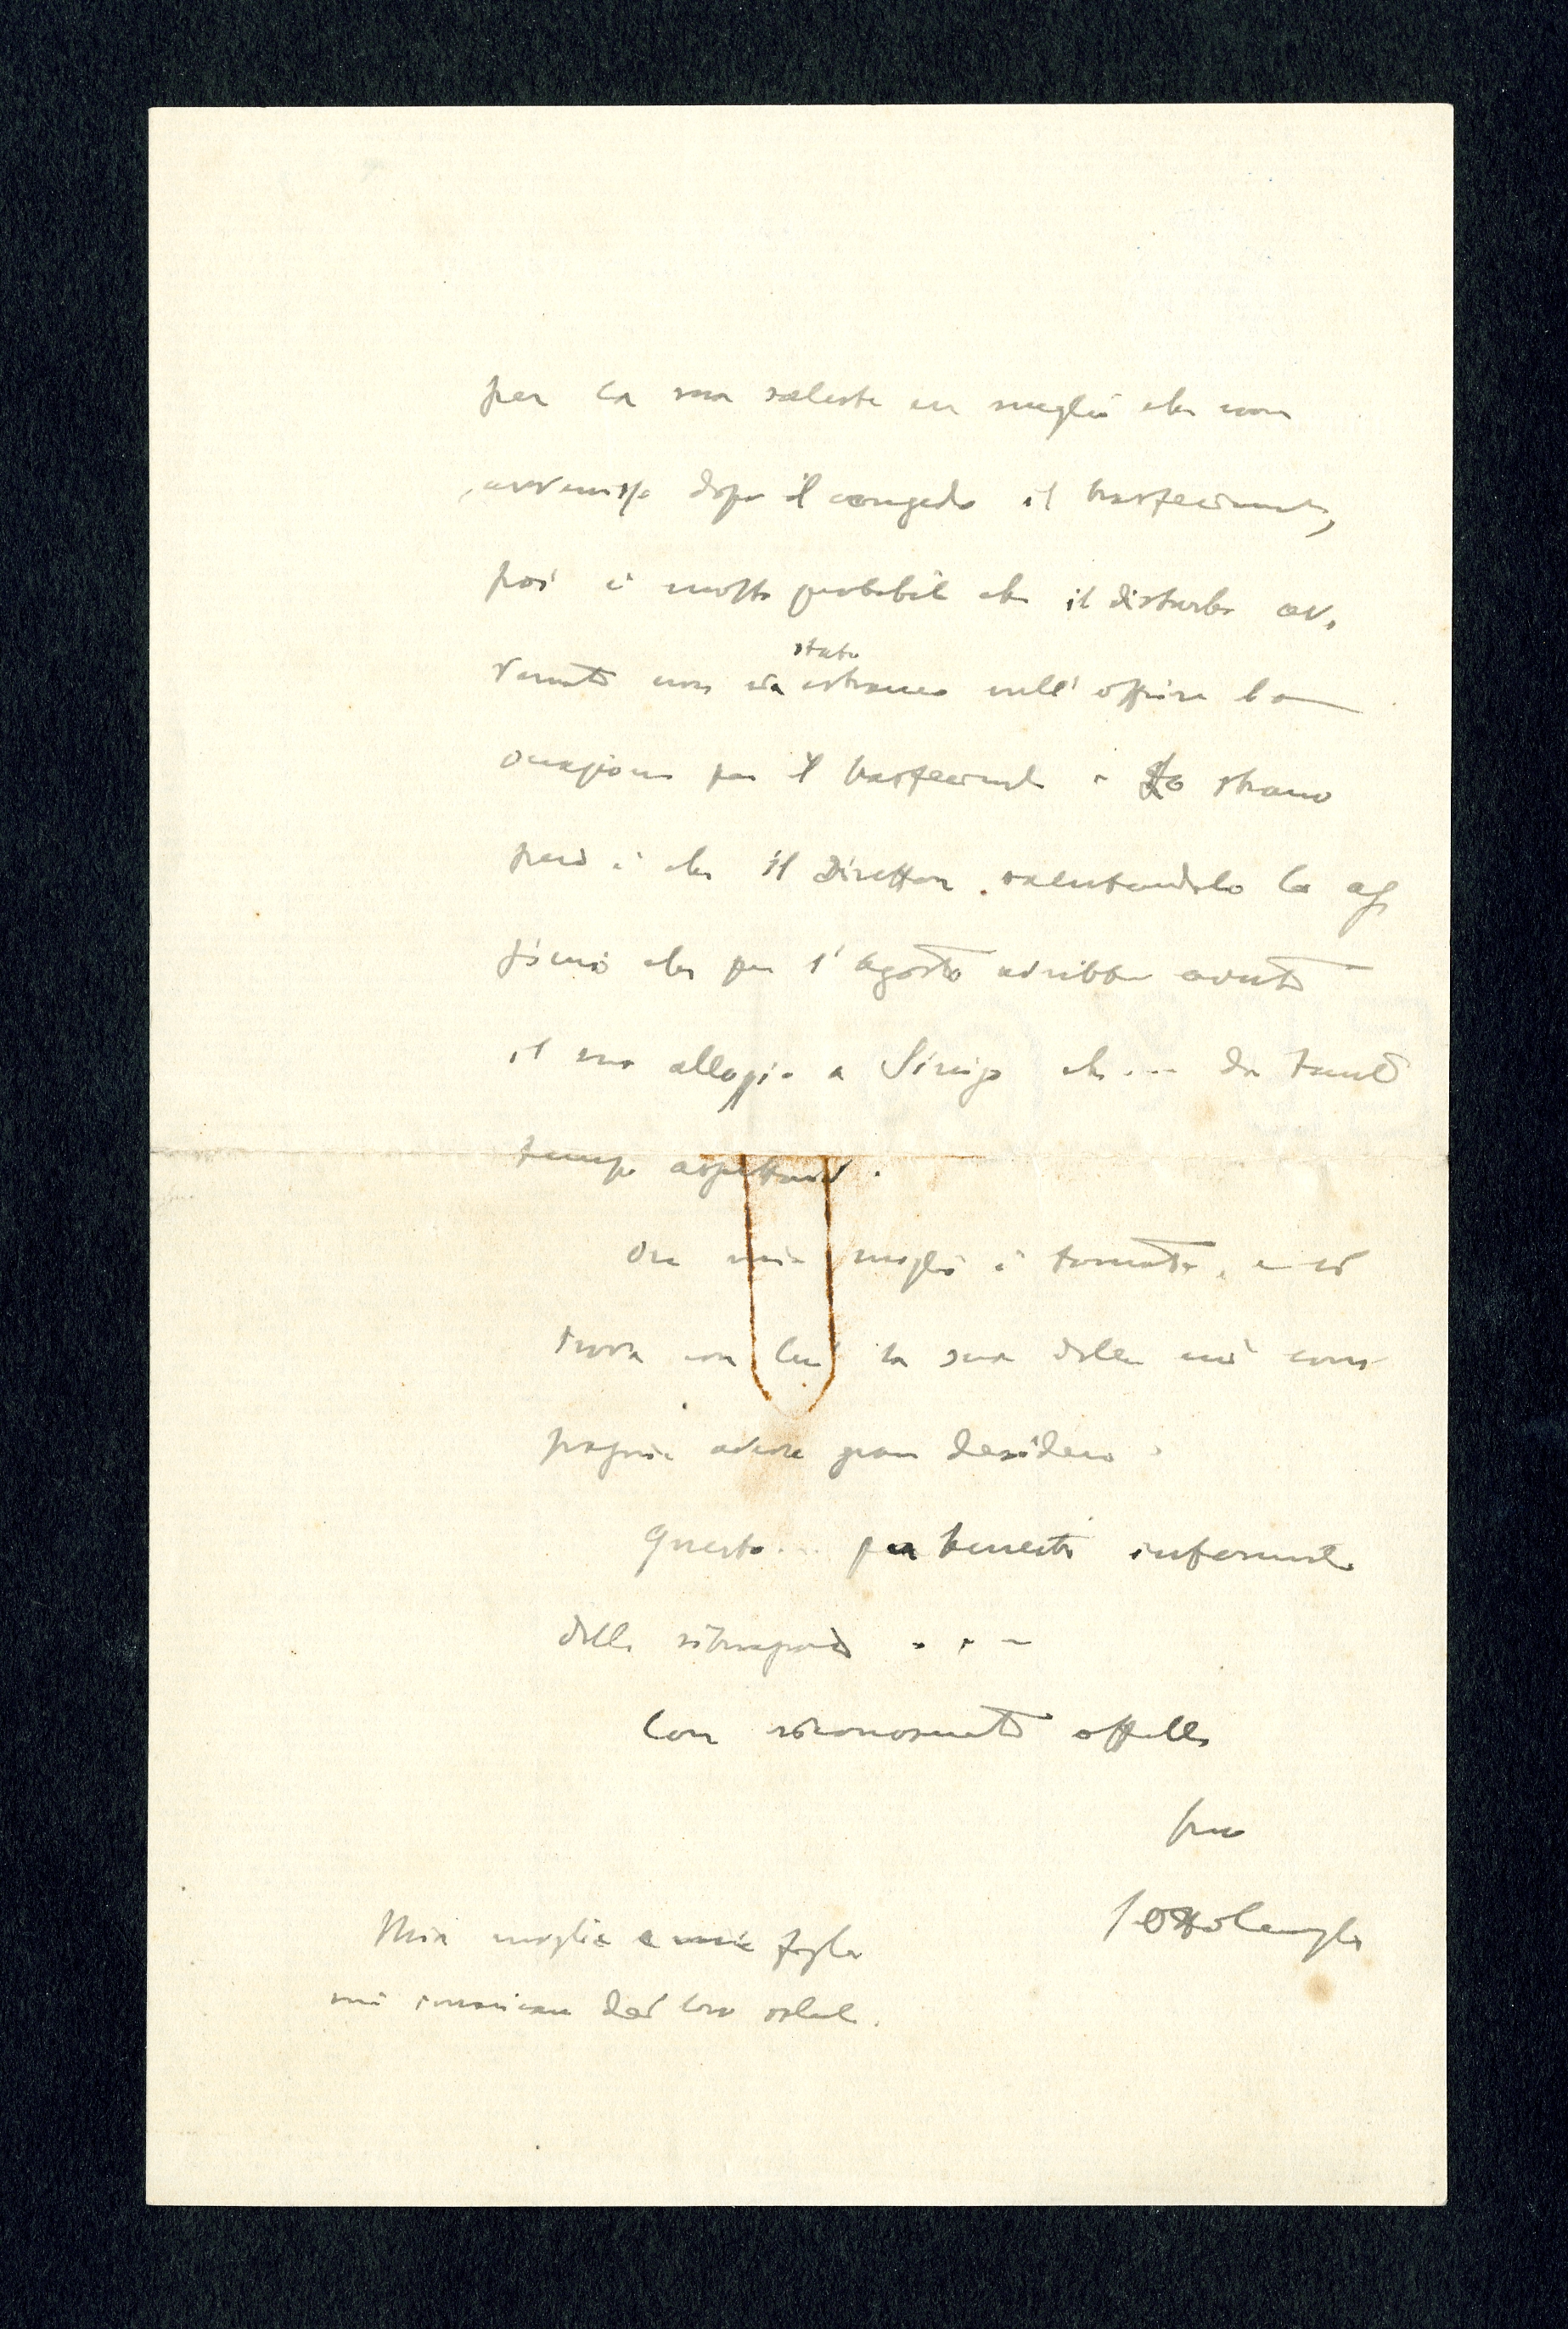 per la sua salute era meglio che non
avvenisse dopo il congedo il trasferimento,
poi è molto probabile che il disturbo av-
venuto non sia stato estraneo nell'offrire la
occasione per il trasferimento. Lo strano
però è che il Direttore salutandolo lo af
fermò che per l'agosto avrebbe avuto
il suo alloggio a Sinigo che... da tanto
tempo aspettava.
Ora mia moglie è tornata, e si
trova con lei la sua di cui com
pagnia aveva gran desiderio.
Questo... per tenerti informato
della
Con riconoscente affetto
tuo
Ottolenghi
Mia moglie e mia figlia
mi incaricano dei loro saluti.